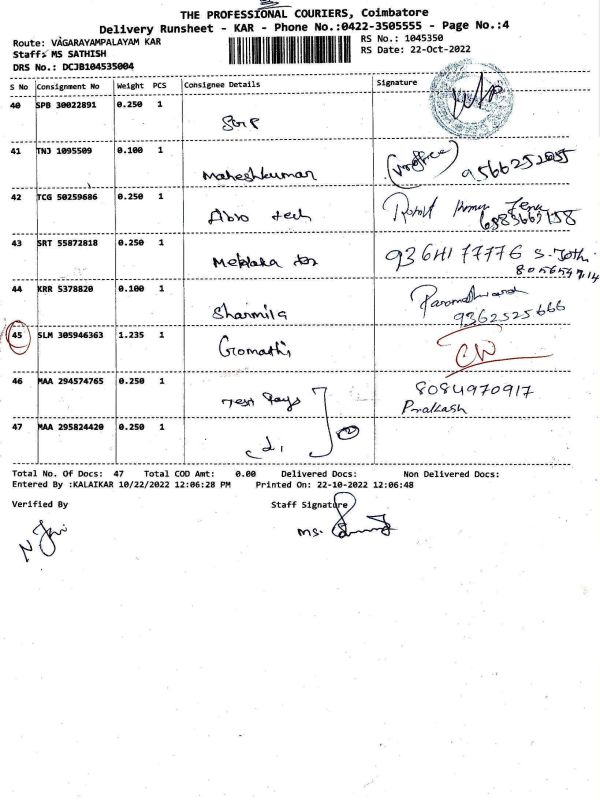 THE PROFESSIONAL COURIERS, Coimbatore
Delivery Runsheet - KAR - Phone No.:0422-3505555 - Page No.:4
Route: VAGARAYAMPALAYAM KAR
RS No.: 1045350
Staff: MS SATHISH
RS Date: 22-Oct-2022
DRS No.: DCJB104535004
S No Consignment No Weight PCS Consignee Details Signature
40 SPB 30022891 0.250 1
41 TNJ 1095509 0.100 1 Maheshkumar
42 TCG 50259686 0.250 1 Abro tech
43 SRT 55872818 0.250 1 93641 77776 S. Jothi
44 KRR 5378820 0.100 1 Sharmila
9362525666
45 SLM 305946363 1.235 1 Gomathi
46 MAA 294574765 0.250 1 8084970917
Prakash
47 MAA 295824420 0.250 1
Total No. Of Docs: 47 Total COD Amt: 0.00 Delivered Docs: Non Delivered Docs:
Entered By :KALAIKAR 10/22/2022 12:06:28 PM Printed On: 22-10-2022 12:06:48
Verified By Staff Signature
MS.